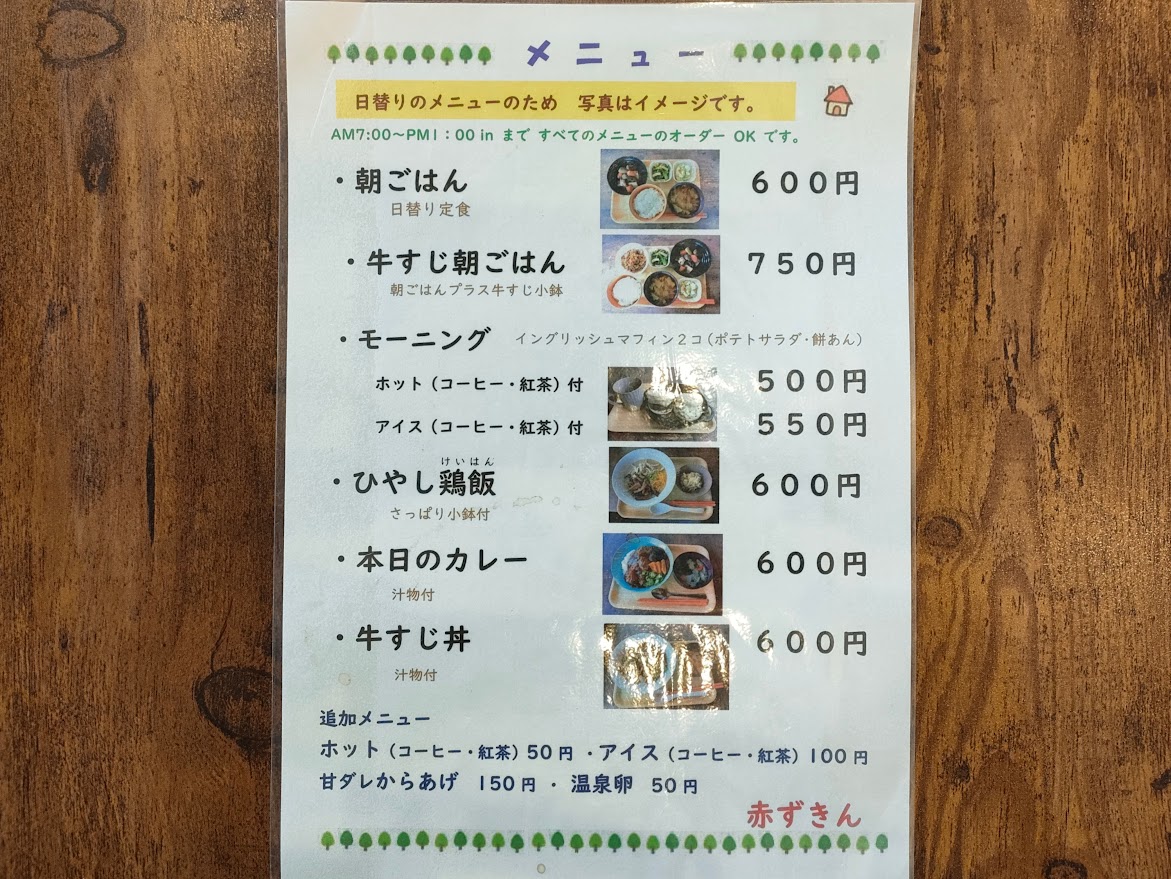 メニュー
日替りのメニューのため　写真はイメージです。
AM7:00～PM1：00 in まで すべてのメニューのオーダー OK です。
・朝ごはん　６００円
日替り定食
・牛すじ朝ごはん　７５０円
朝ごはんプラス牛すじ小鉢
・モーニング　イングリッシュマフィン２コ（ポテトサラダ・餅あん）
ホット（コーヒー・紅茶）付　５００円
アイス（コーヒー・紅茶）付　５５０円
けいはん
・ひやし鶏飯　６００円
さっぱり小鉢付
・本日のカレー　６００円
汁物付
・牛すじ丼　６００円
汁物付
追加メニュー
ホット（コーヒー・紅茶）50円 ・アイス（コーヒー・紅茶）100円
甘ダレからあげ　150円 ・ 温泉卵　50円
赤ずきん